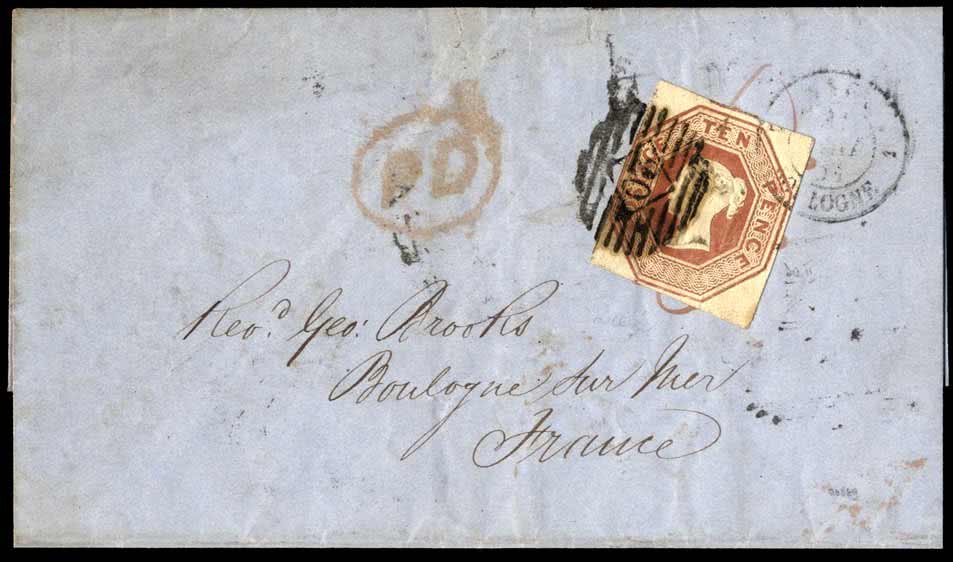 PD
TEN PENCE
LOGNE
Rev.d Geo: Brooks
Boulogne Sur Mer
France